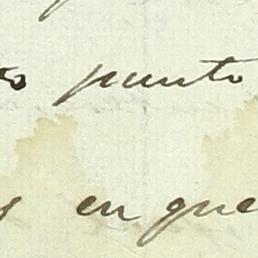 punto
en que